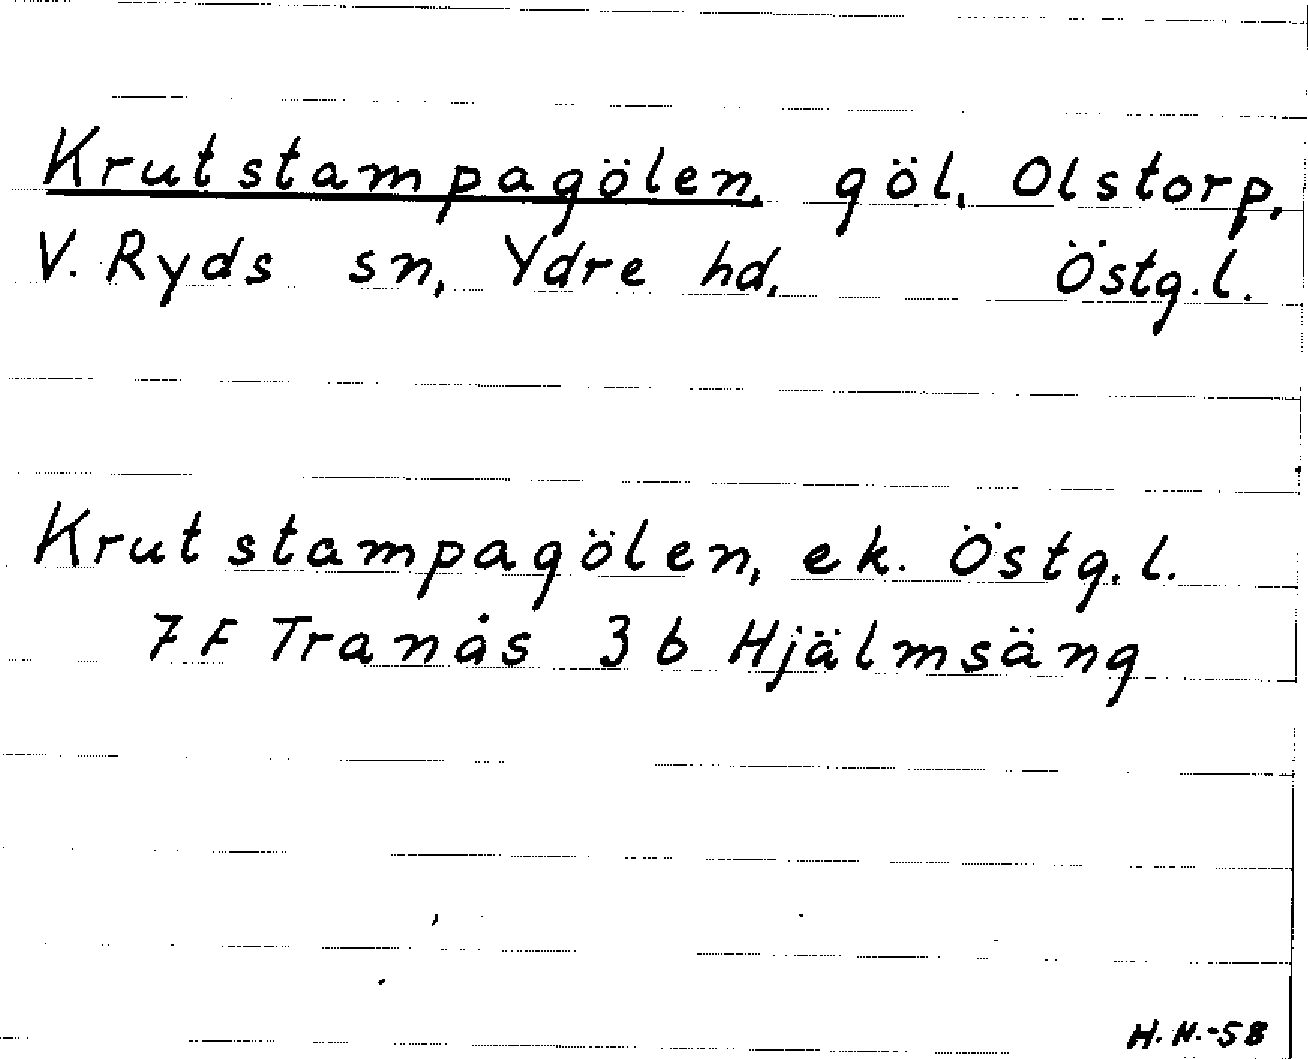 Krutstampagölen, göl, Olstorp,
V. Ryds sn, Ydre hd, Östg.l.
Krutstampagölen, ek. Östg.l.
7F Tranås 3b Hjälmsäng
H.H.-58